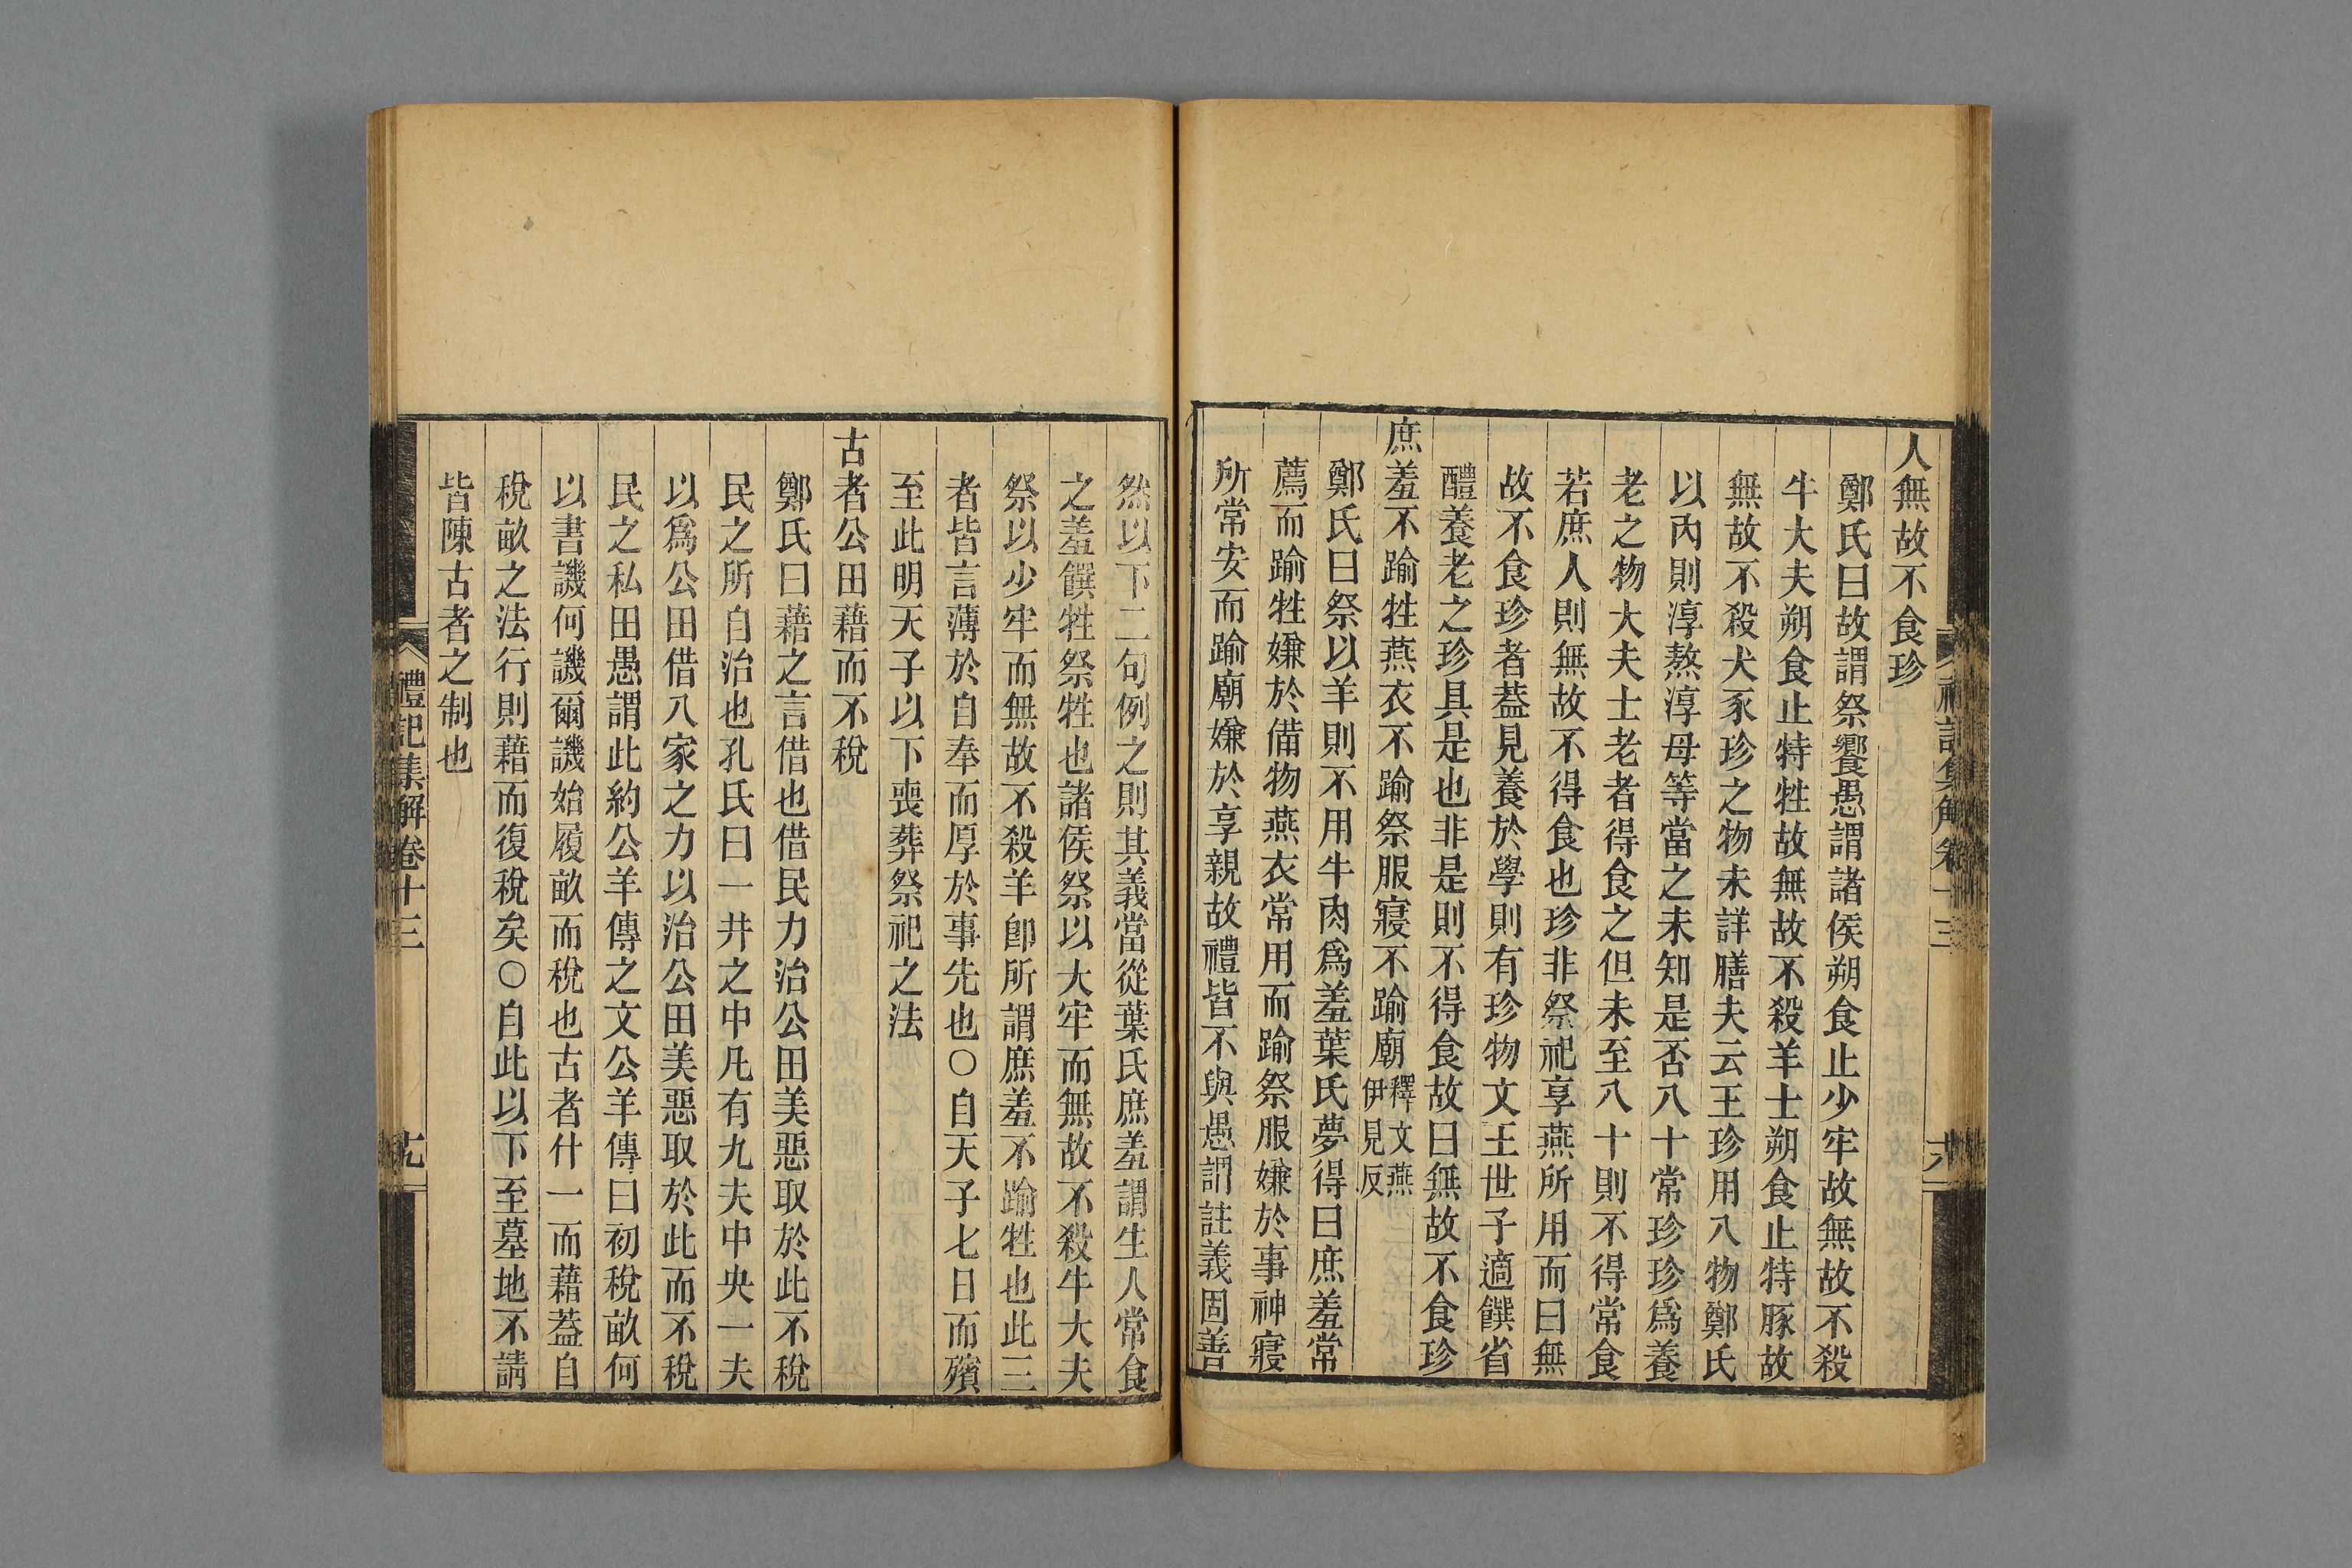 禮記集解卷十三
六
人無故不食珍
鄭氏曰故謂祭饗愚謂諸侯朔食止少牢故無故不殺
牛大夫朔食止特牲故無故不殺羊士朔食止特豚故
無故不殺犬豕珍之物未詳膳夫云王珍用八物鄭氏
以內則淳熬淳母等當之未知是否八十常珍珍爲養
老之物大夫士老者得食之但未至八十則不得常食
若庶人則無故不得食也珍非祭祀享燕所用而曰無
故不食珍者葢見養於學則有珍物文王世子適饌省
醴養老之珍具是也非是則不得食故曰無故不食珍
庶羞不踰牲燕衣不踰祭服寢不踰廟釋文燕伊見反
鄭氏曰祭以羊則不用牛肉爲羞葉氏夢得曰庶羞常
薦而踰牲嫌於備物燕衣常用而踰祭服嫌於事神寢
所常安而踰廟嫌於享親故禮皆不與愚謂註義固善
然以下二句例之則其義當從葉氏庶羞謂生人常食
之羞饌牲祭牲也諸侯祭以大牢而無故不殺牛大夫
祭以少牢而無故不殺羊卽所謂庶羞不踰牲也此三
者皆言薄於自奉而厚於事先也○自天子七日而殯
至此明天子以下喪葬祭祀之法
古者公田藉而不稅
鄭氏曰藉之言借也借民力治公田美惡取於此不稅
民之所自治也孔氏曰一井之中凡有九夫中央一夫
以爲公田借八家之力以治公田美惡取於此而不稅
民之私田愚謂此約公羊傳之文公羊傳曰初稅畝何
以書譏何譏爾譏始履畝而稅也古者什一而藉葢自
稅畝之法行則藉而復稅矣○自此以下至墓地不請
皆陳古者之制也
禮記集解卷十三